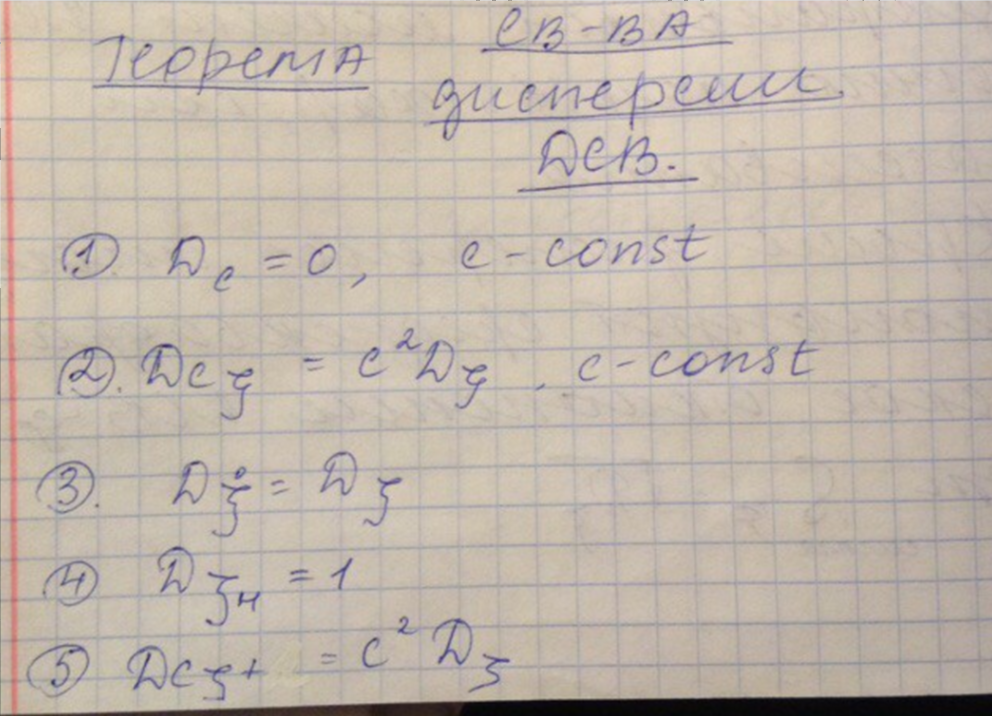 Теорема
св-ва
дисперсии
ДСВ.
① D_c = 0, c - const
②. Dcξ = c²Dξ, c - const
③. Dξ̊ = Dξ
④ Dξн = 1
⑤ Dcξ+ = c² Dξ